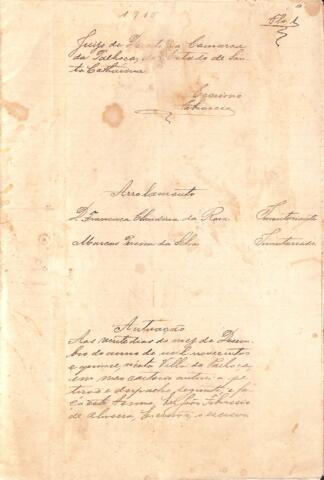 1915
Fls 1
Juizo de Direito da Comarca
da Palhoça, do Estado de San-
ta Catharina
Escrivão
Arrolamento
D. Francisca Claudina da Rosa Inventariante
Marcos da Silva Inventariado
Autuação
Aos vinte dias do mez de Dezem-
bro do anno de mil novecentos
e quinze, nesta Villa da Palhoça,
em meu cartorio autuei a pe-
tição e despacho, do que fa-
ço este termo, Eu,
de Oliveira, Escrivão, o escrevi